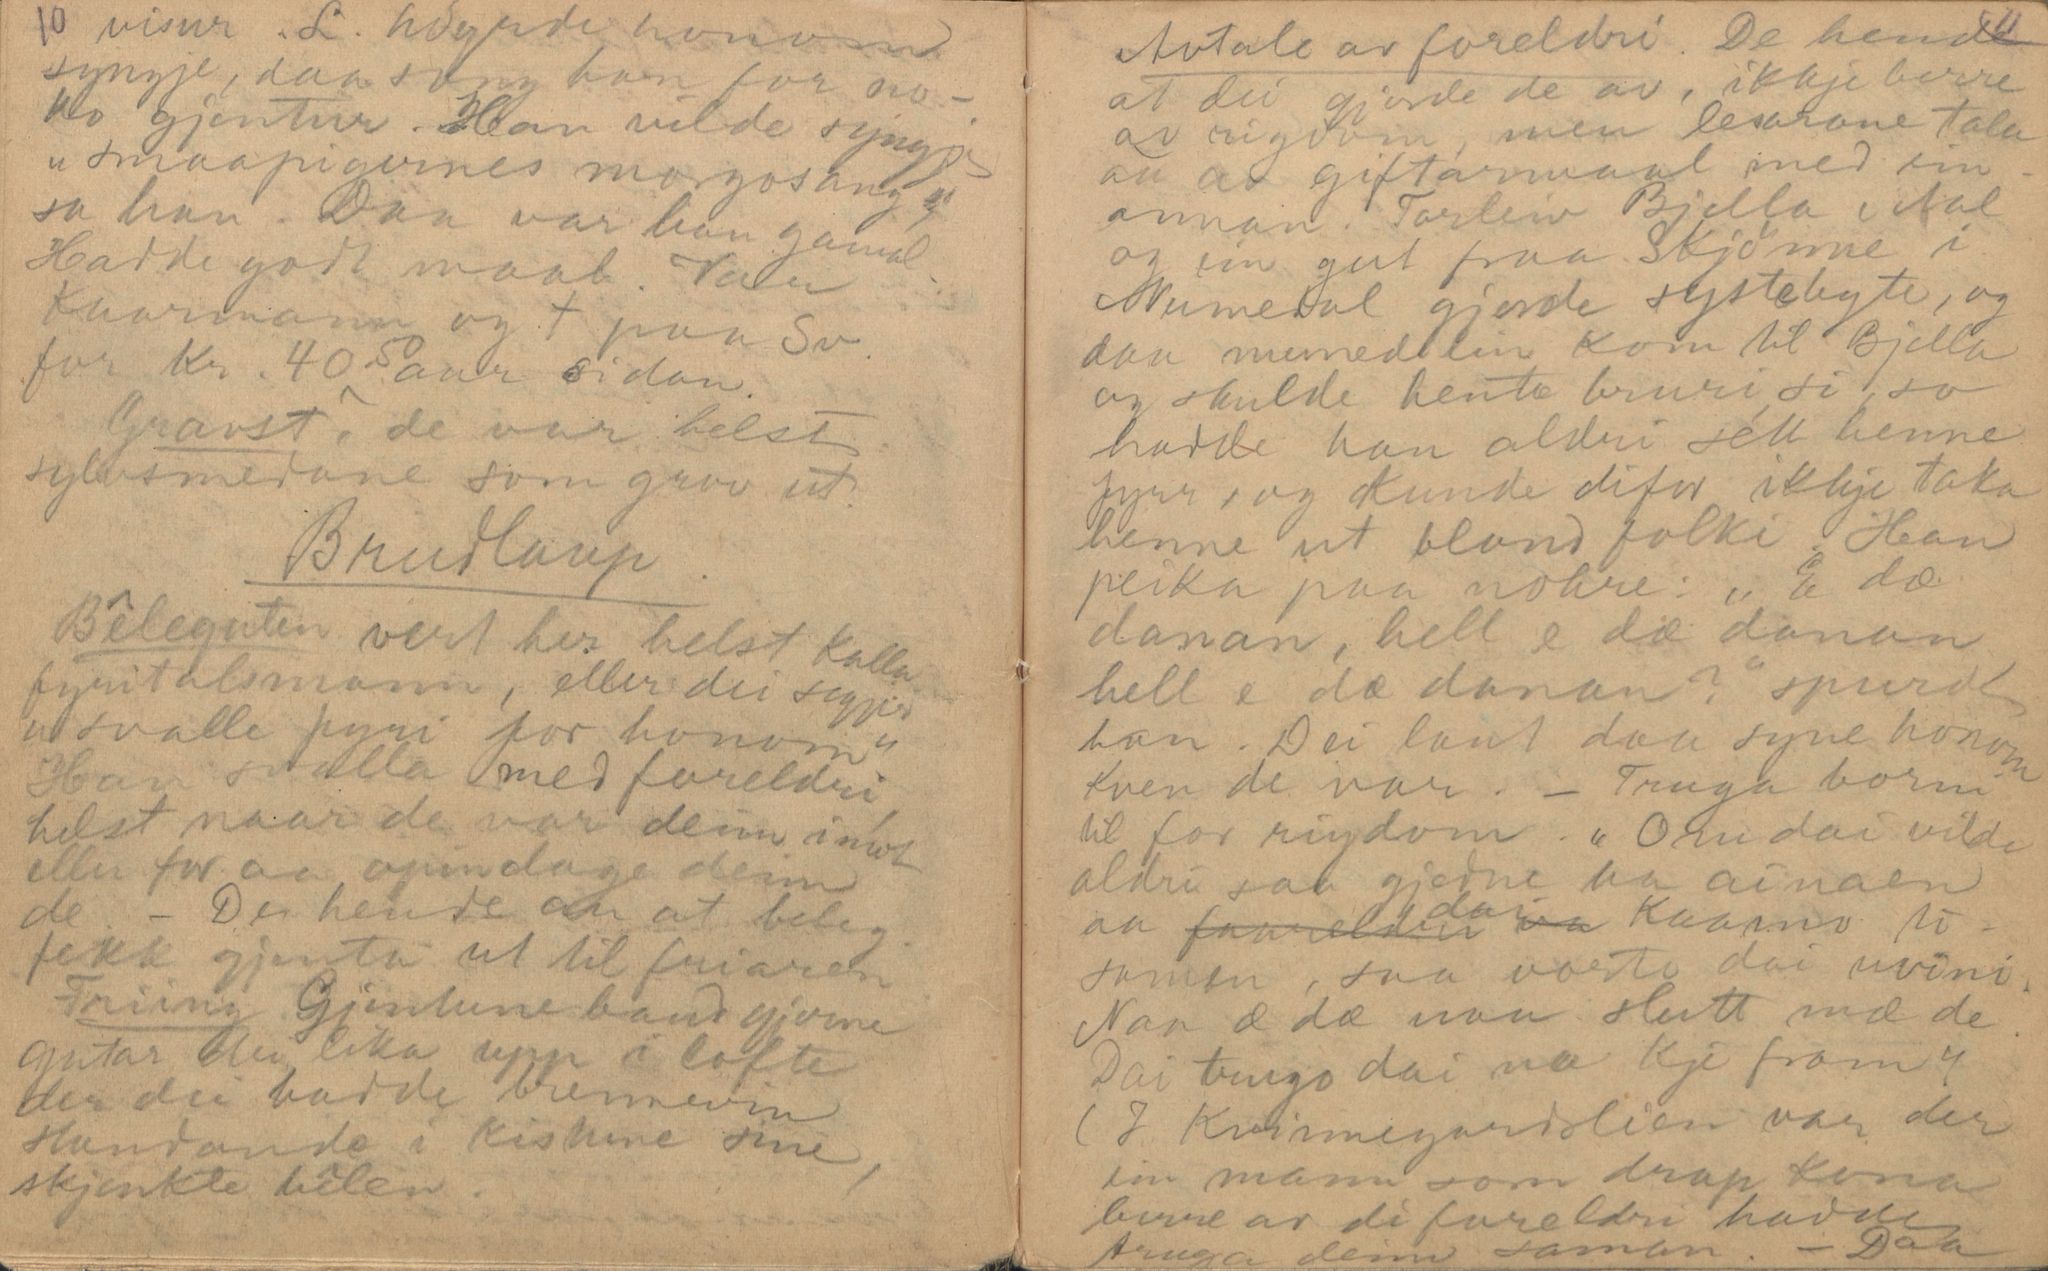 10 visur. L. höyrde honom
syngje, daa song han for no-
ko gjentur. Han vilde syngje
"smaapigernes morgosang"
sa han. Daa var han gamal.
Hadde godt maal. Var
Kaarmann og † paa Sv.
for kr. 40 50 aar sidan.
Gravst, de var helst
sylvsmedane som grov ut.
Brudlaup.
Bêleguten vert her helst kalla
fyritalsmann, eller dei segjer
"svalle fyri for honom"
Han svalla med foreldri
helst naar de var deim imot
eller for aa opendage deim
de. - De hende au at beleg.
fekk gjenta ut til friaren
Friing Gjentune baud gjorne
gutar dei lika upp i lofte
der dei hadde brennevin
standande i kistune sine,
skjenkte bêlen.
11
Avtale av foreldri. De hende
at dei gjorde de av, ikkje berre
av rigdom, men lesarane tala
au av giftarmaal med ein-
annan. Torleiv Bjella i Aal
og ein gut fraa Skjönne i
Numedal gjorde systebyte, og
daa numedölin kom til Bjella
og skulde henta bruri si, so
hadde han aldri sét henne
fyrr, og kunde difor ikkje taka
henne ut bland folki. Han
peika paa nokre: "E dæ
danan, hell e dæ danan
hell e dæ danan?" spurde
han. Dei laut daa syne honom
kven de var. - Truga borni
til for rigdom. "Om dai vilde
aldri saa gjedne ha ainaen
aa faareldri dai va Kaamo ti-
samen, saa vorto dai uvini.
Naa æ dæ naa slutt mæ de.
Dai tungo dai na kje fram"
(I Kvinnegardslien var der
ein mann som drap kona
berre av di foreldri hadde
truga deim saman. - Daa